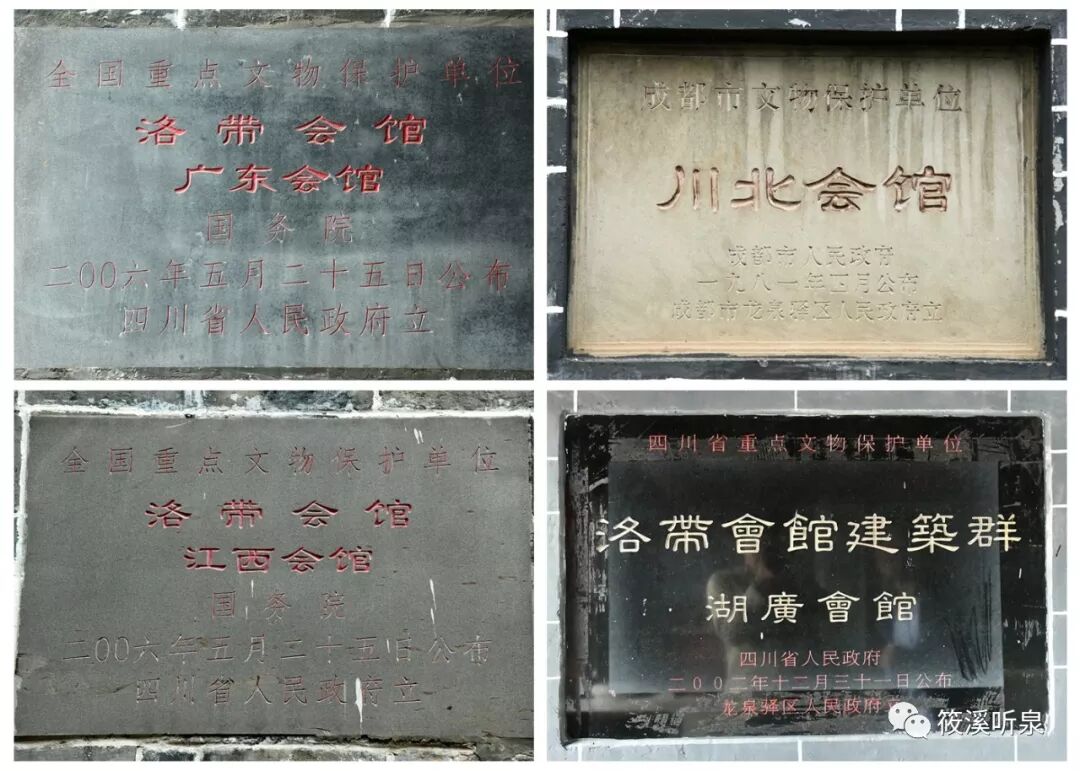 全国重点文物保护单位
洛带会馆
广东会馆
国务院
二〇〇六年五月二十五日公布
四川省人民政府立
成都市文物保护单位
川北会馆
成都市人民政府
一九八一年四月公布
成都市龙泉驿区人民政府立
全国重点文物保护单位
洛带会馆
江西会馆
国务院
二〇〇六年五月二十五日公布
四川省人民政府立
四川省重点文物保护单位
洛帶會館建築群
湖廣會館
四川省人民政府
二〇〇二年十二月三十一日公布
龙泉驿区人民政府立
筱溪听泉